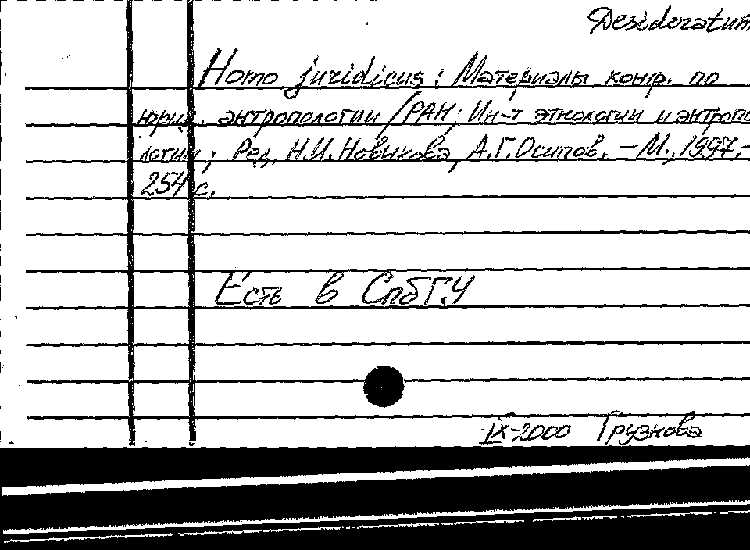 Desideratum
Homo juridicus: Материалы конф. по
юрид. антропологии / РАН; Ин-т этнологии и антропо
логии; Ред. Н.И. Новикова, А.Г. Осипов. – М., 1997.–
254 с.
Есть в СпбГУ
IX-2000 Грузнова